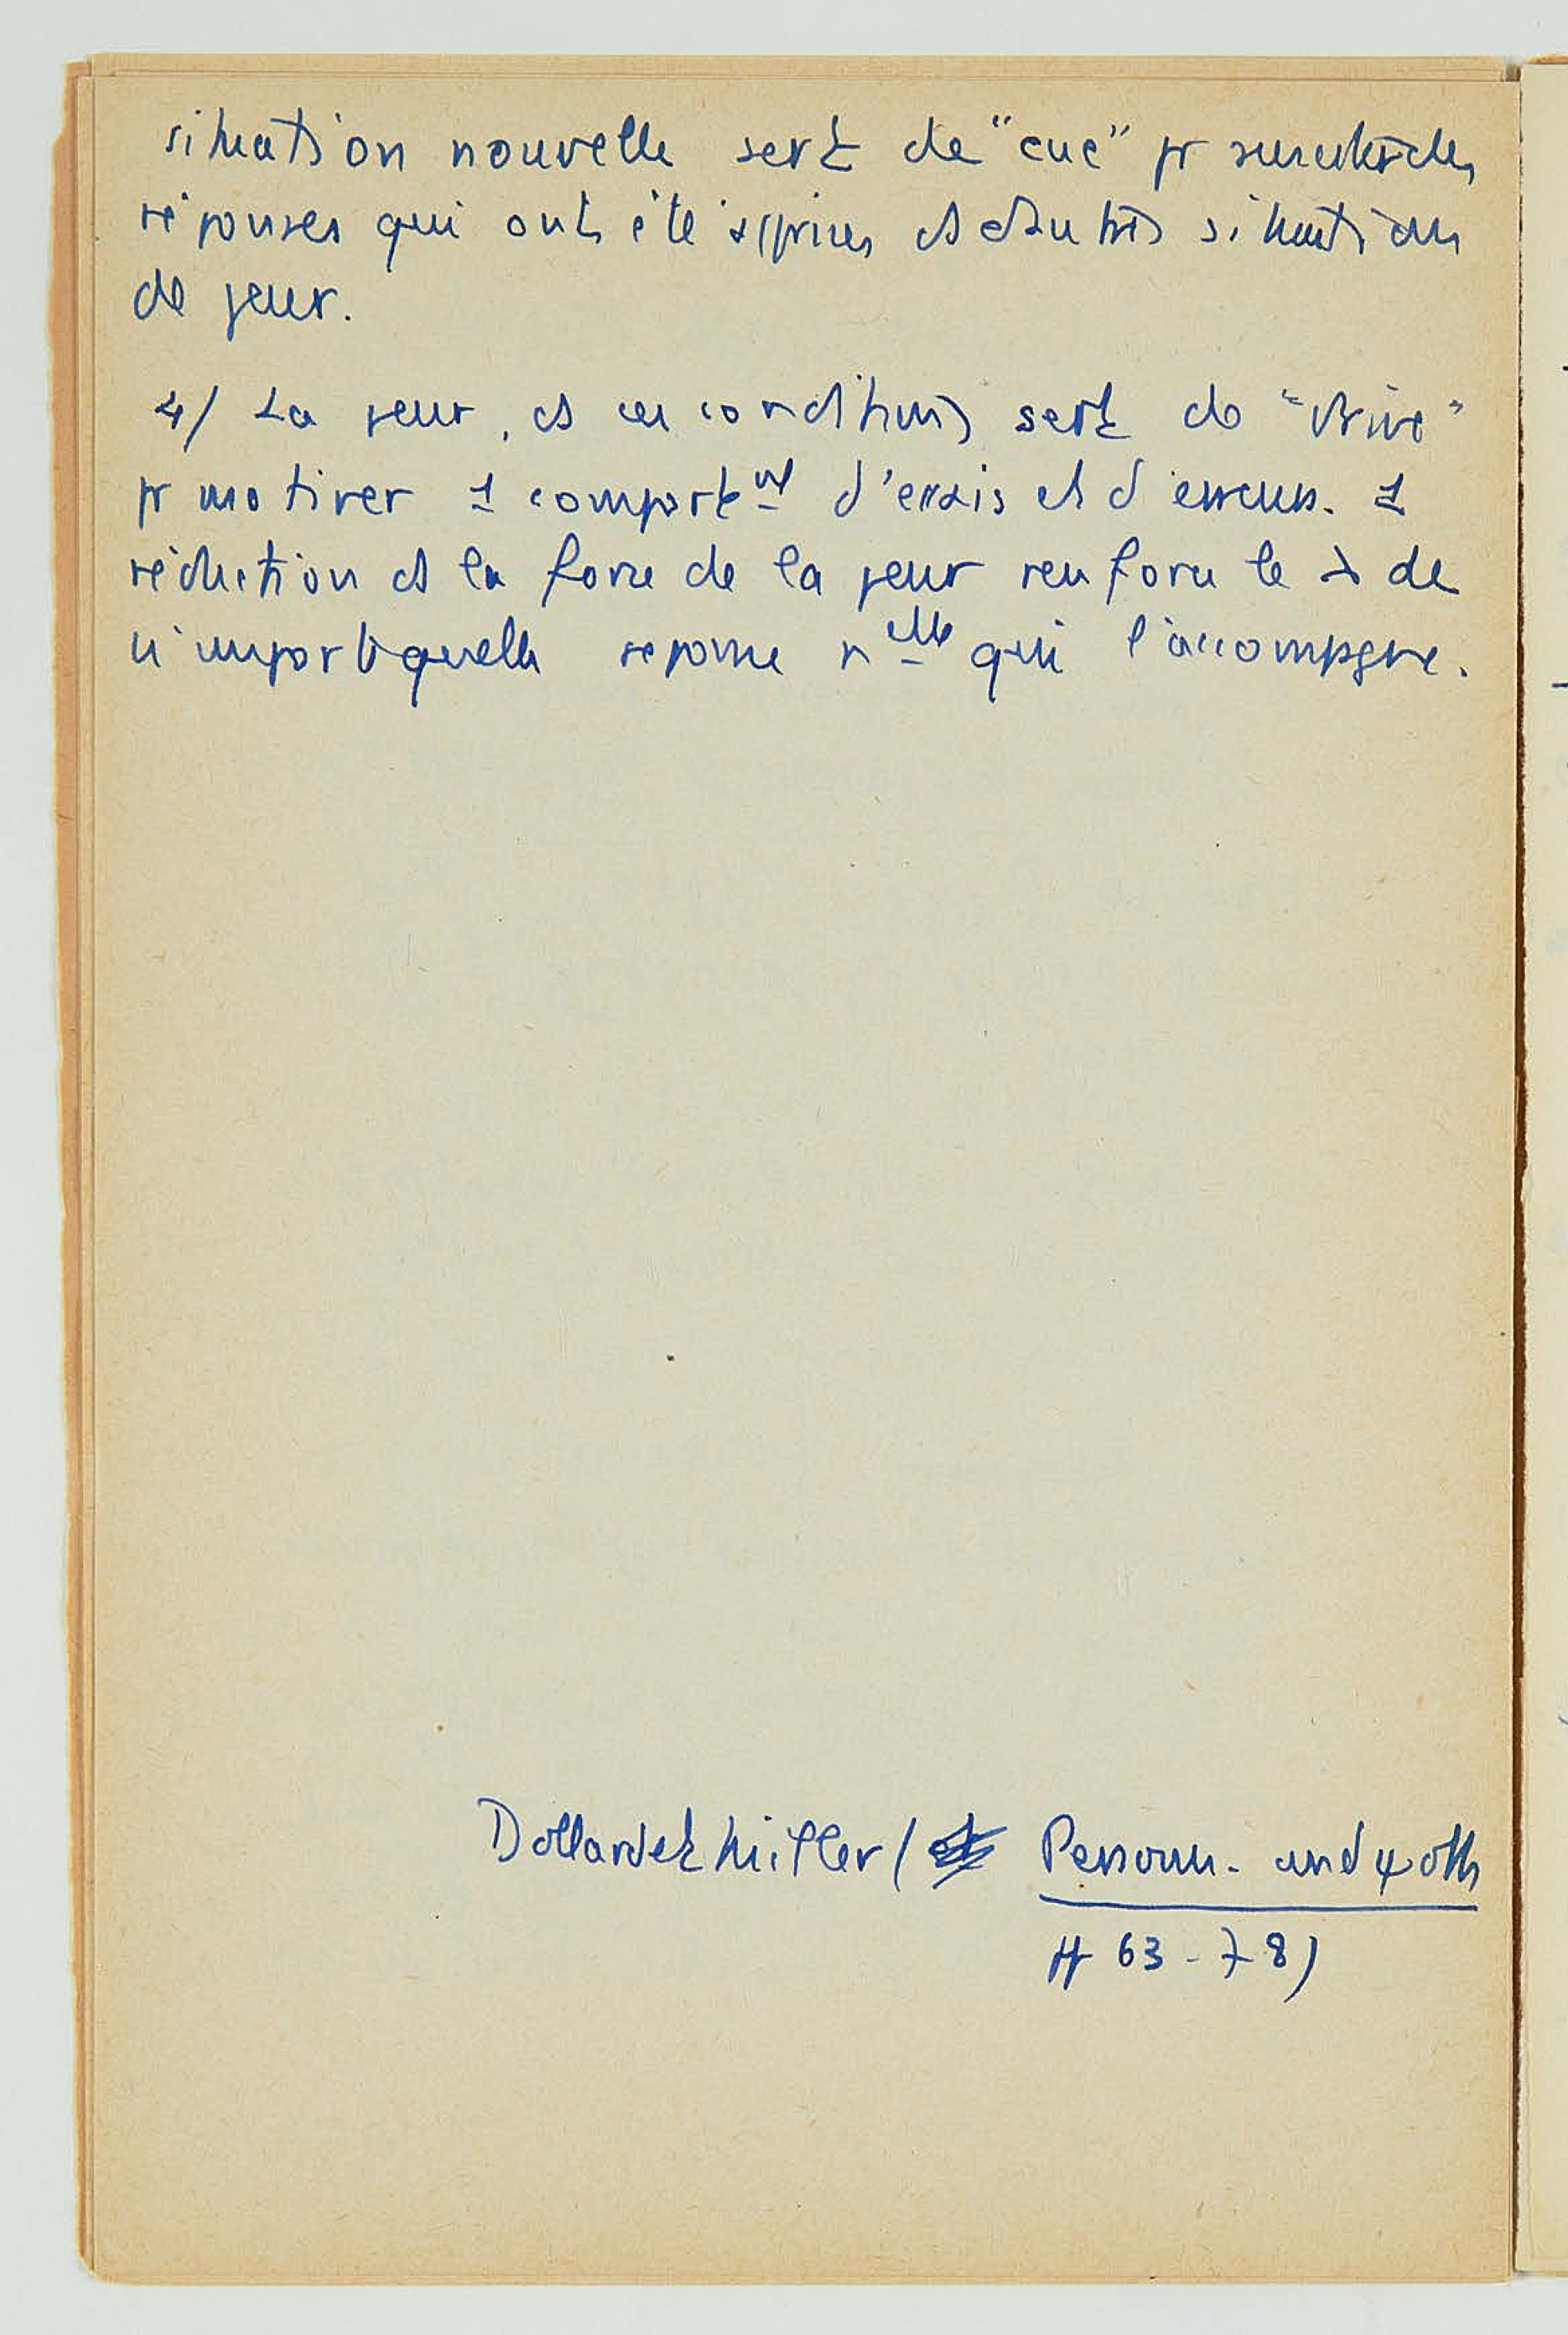 situation nouvelle sert de "cue" pr susciter des
réponses qui ont été apprises ds d'autres situations
de peur.
4/ La peur, ds ces conditions sert de "drive"
pr motiver 1 comportemt d'essais et d'erreurs. 1
réduction ds la force de la peur renforce le de
n'importe quelle réponse nelle qui l'accompagne.
Dollard et Miller / Personn. and ψoth
pp 63-78)